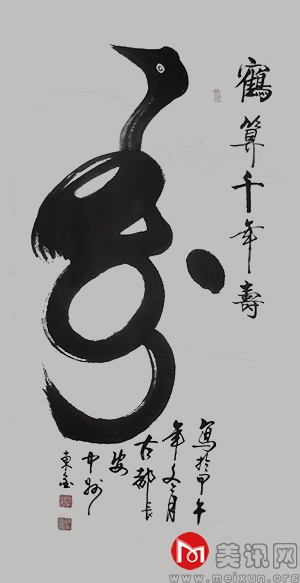 鶴算千年壽
寫於甲午
年冬月
古都長
安
中州
東金
美讯网
www.meixun.org